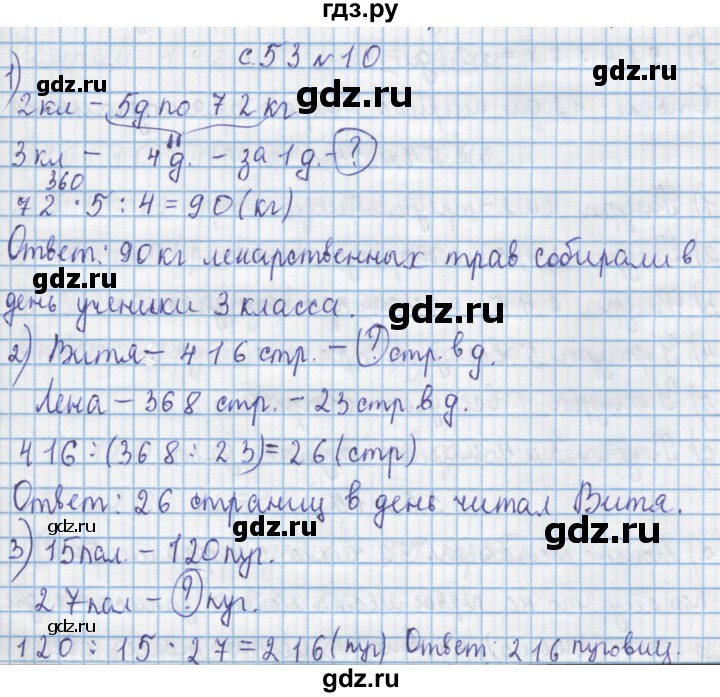 гдз.ру
с.53 №10.
1)
gdz.ru gdz.ru
2 кл – 5д. по 72 кг
3 кл – 4 д. – за 1 д. – ?
360
72 · 5 : 4 = 90 (кг)
Ответ: 90 кг лекарственных трав собирали в
gdz.ru
день ученики 3 класса.
gdz.ru
2) Витя – 416 стр. – ? стр. в д.
Лена – 368 стр. – 23 стр в д.
416 : (368 : 23) = 26 (стр)
gdz.ru
Ответ: 26 страниц в день читал Витя.
gdz.ru gdz.ru
3) 15 пал. – 120 пуг.
27 пал – ? пуг.
gdz.ru
120 : 15 · 27 = 216 (пуг) Ответ: 216 пуговиц.
gdz.ru gdz.ru